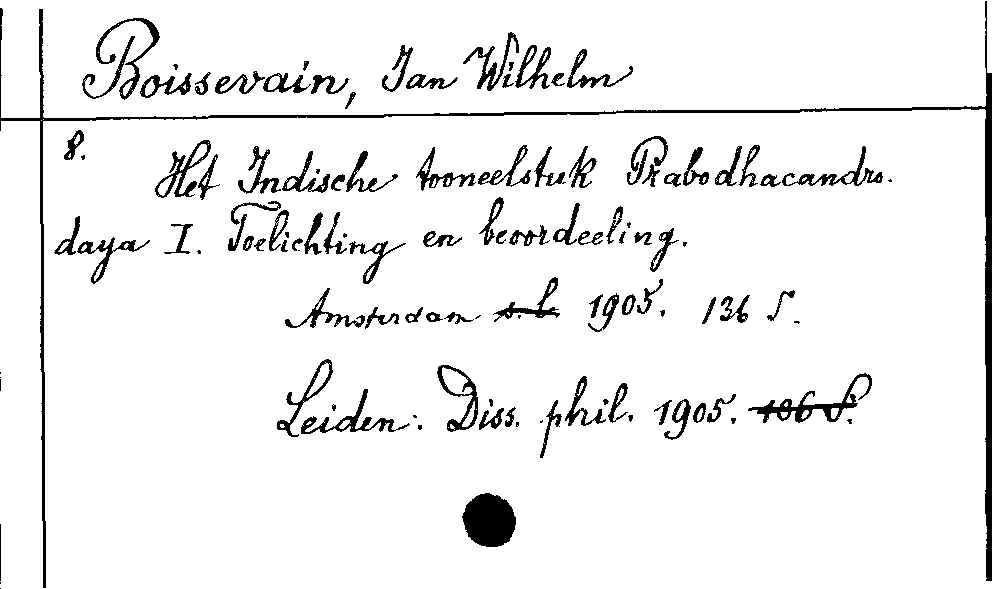 Boissevain, Jan Wilhelm
8.
Het Indische tooneelstuk Prabodhacandro-
daya I. Toelichting en beoordeeling.
Amsterdam s. l. 1905. 136 S.
Leiden: Diss. phil. 1905. 106 S.